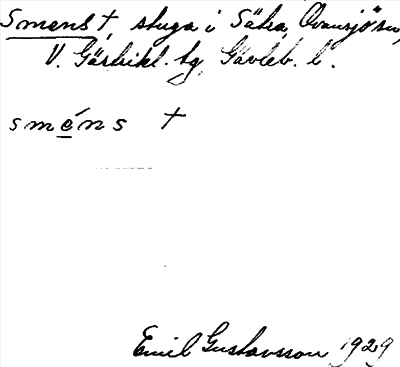 Smens †, stuga i Säkra, Ovansjö sn,
V. Gästrikl. tg, Gävleb. l.
sméns †
Emil Gustavsson 1929